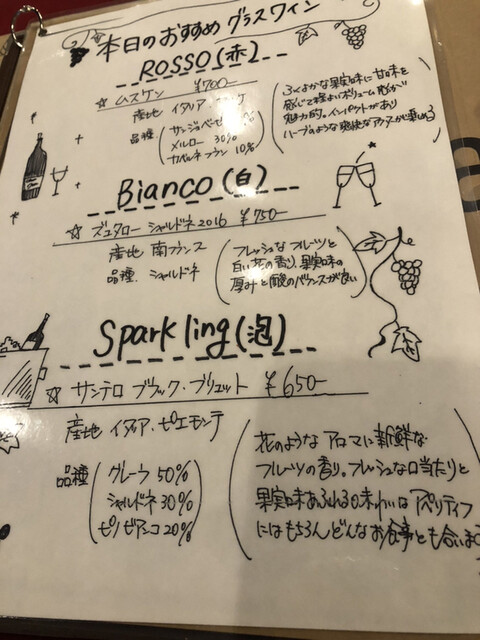 本日のおすすめ グラスワイン
ROSSO(赤)
☆ ムスケン ¥700-
産地 イタリア
品種 サンジョベーゼ
メルロー 30%
カベルネフラン 10%
ふくよかな果実味に甘味を
感じて程よいボリューム感が
魅力的。インパクトがあり
ハーブのような爽快な
Bianco(白)
☆ ズュタロー シャルドネ2016 ¥750-
産地 南フランス
品種 シャルドネ
フレッシュなフルーツと
白い花の香り、果実味の
厚みと酸のバランスが良い
Sparkling(泡)
☆ サンテロ ブラック・ブリュット ¥650-
産地 イタリア・ピエモンテ
品種 グレーラ 50%
シャルドネ 30%
ピノビアンコ 20%
花のようなアロマに新鮮な
フルーツの香り。フレッシュな口当たりと
果実味あふれる味わいは アペリティフ
にはもちろんどんなお食事とも合いま